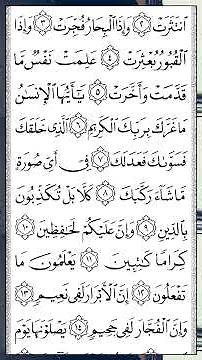 ٱنتَثَرَتْ ۝٢ وَإِذَا ٱلْبِحَارُ فُجِّرَتْ ۝٣ وَإِذَا
ٱلْقُبُورُ بُعْثِرَتْ ۝٤ عَلِمَتْ نَفْسٌ مَّا
قَدَّمَتْ وَأَخَّرَتْ ۝٥ يَٰٓأَيُّهَا ٱلْإِنسَٰنُ
مَا غَرَّكَ بِرَبِّكَ ٱلْكَرِيمِ ۝٦ ٱلَّذِى خَلَقَكَ
فَسَوَّىٰكَ فَعَدَلَكَ ۝٧ فِىٓ أَىِّ صُورَةٍ
مَّا شَآءَ رَكَّبَكَ ۝٨ كَلَّا بَلْ تُكَذِّبُونَ
بِٱلدِّينِ ۝٩ وَإِنَّ عَلَيْكُمْ لَحَٰفِظِينَ ۝١٠
كِرَامًا كَٰتِبِينَ ۝١١ يَعْلَمُونَ مَا
تَفْعَلُونَ ۝١٢ إِنَّ ٱلْأَبْرَارَ لَفِى نَعِيمٍ ۝١٣
وَإِنَّ ٱلْفُجَّارَ لَفِى جَحِيمٍ ۝١٤ يَصْلَوْنَهَا يَوْمَ